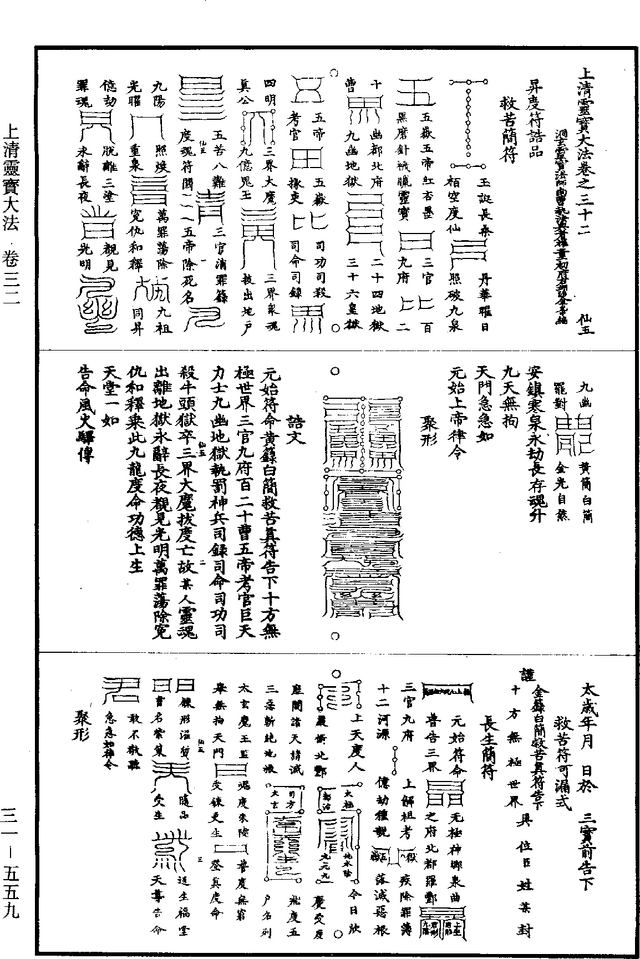 上清靈寶大法 卷三二
三一—五五九
上清靈寶大法卷之三十二
仙五
昇度符誥品
救苦簡符
玉誕長桑
栢空度仙
丹華曜日
照破九泉
五嶽五帝
九府
三官
百二
十曹
幽都北府
九幽地獄
二十四地獄
三十六皇獄
五帝
考官
五嶽
掾吏
司功司殺
司命司錄
四明
真公
三界大魔
九億鬼王
三界衆魂
拔出地戶
五苦八難
度魂符關
三官消罪籙
五帝除死名
九陽
光曜
照煥
重泉
萬罪蕩除
寃仇和釋
九祖
同昇
億劫
罪魂
脫離三塗
永辭長夜
覩見
光明
九幽
罷對
黃簡白簡
金光自然
安鎮寒泉永劫長存魂升
九天無拘
天門急急如
元始上帝律令
聚形
誥文
元始符命黃籙白簡救苦真符告下十方無
極世界三官九府百二十曹五帝考官巨天
力士九幽地獄執罰神兵司錄司命司功司
殺牛頭獄卒三界大魔拔度亡故某人靈魂
出離地獄永辭長夜覩見光明萬罪蕩除寃
仇和釋乘此九龍度命功德上生
天堂一如
告命風火驛傳
太歲年月 日於 三寶前告下
救苦符可漏式
謹
金籙白簡救苦真符告下
十方無極世界
具位臣姓某封
長生簡符
元始符命
普告三界
無極神鄉泉曲
之府北都羅酆
三官九府
十二河源
上解祖考
億劫種親
疾除罪簿
落滅惡根
上天度人
嚴衝北酆
太極
勑治
今日欣
慶受度
魂度朱陵
受鍊更生
普度無窮
登真度命
鍊形沼質
書名紫策
隨品
受生
逍生福堂
天尊告命
敢不敬聽
急急如律令
聚形